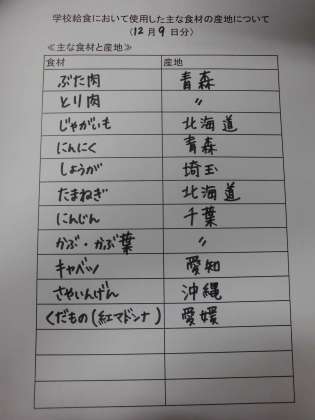 学校給食において使用した主な食材の産地について
（12月9日分）
≪主な食材と産地≫
食材 産地
ぶた肉 青森
とり肉 〃
じゃがいも 北海道
にんにく 青森
しょうが 埼玉
たまねぎ 北海道
にんじん 千葉
かぶ・かぶ葉 〃
キャベツ 愛知
さやいんげん 沖縄
くだもの(紅マドンナ) 愛媛